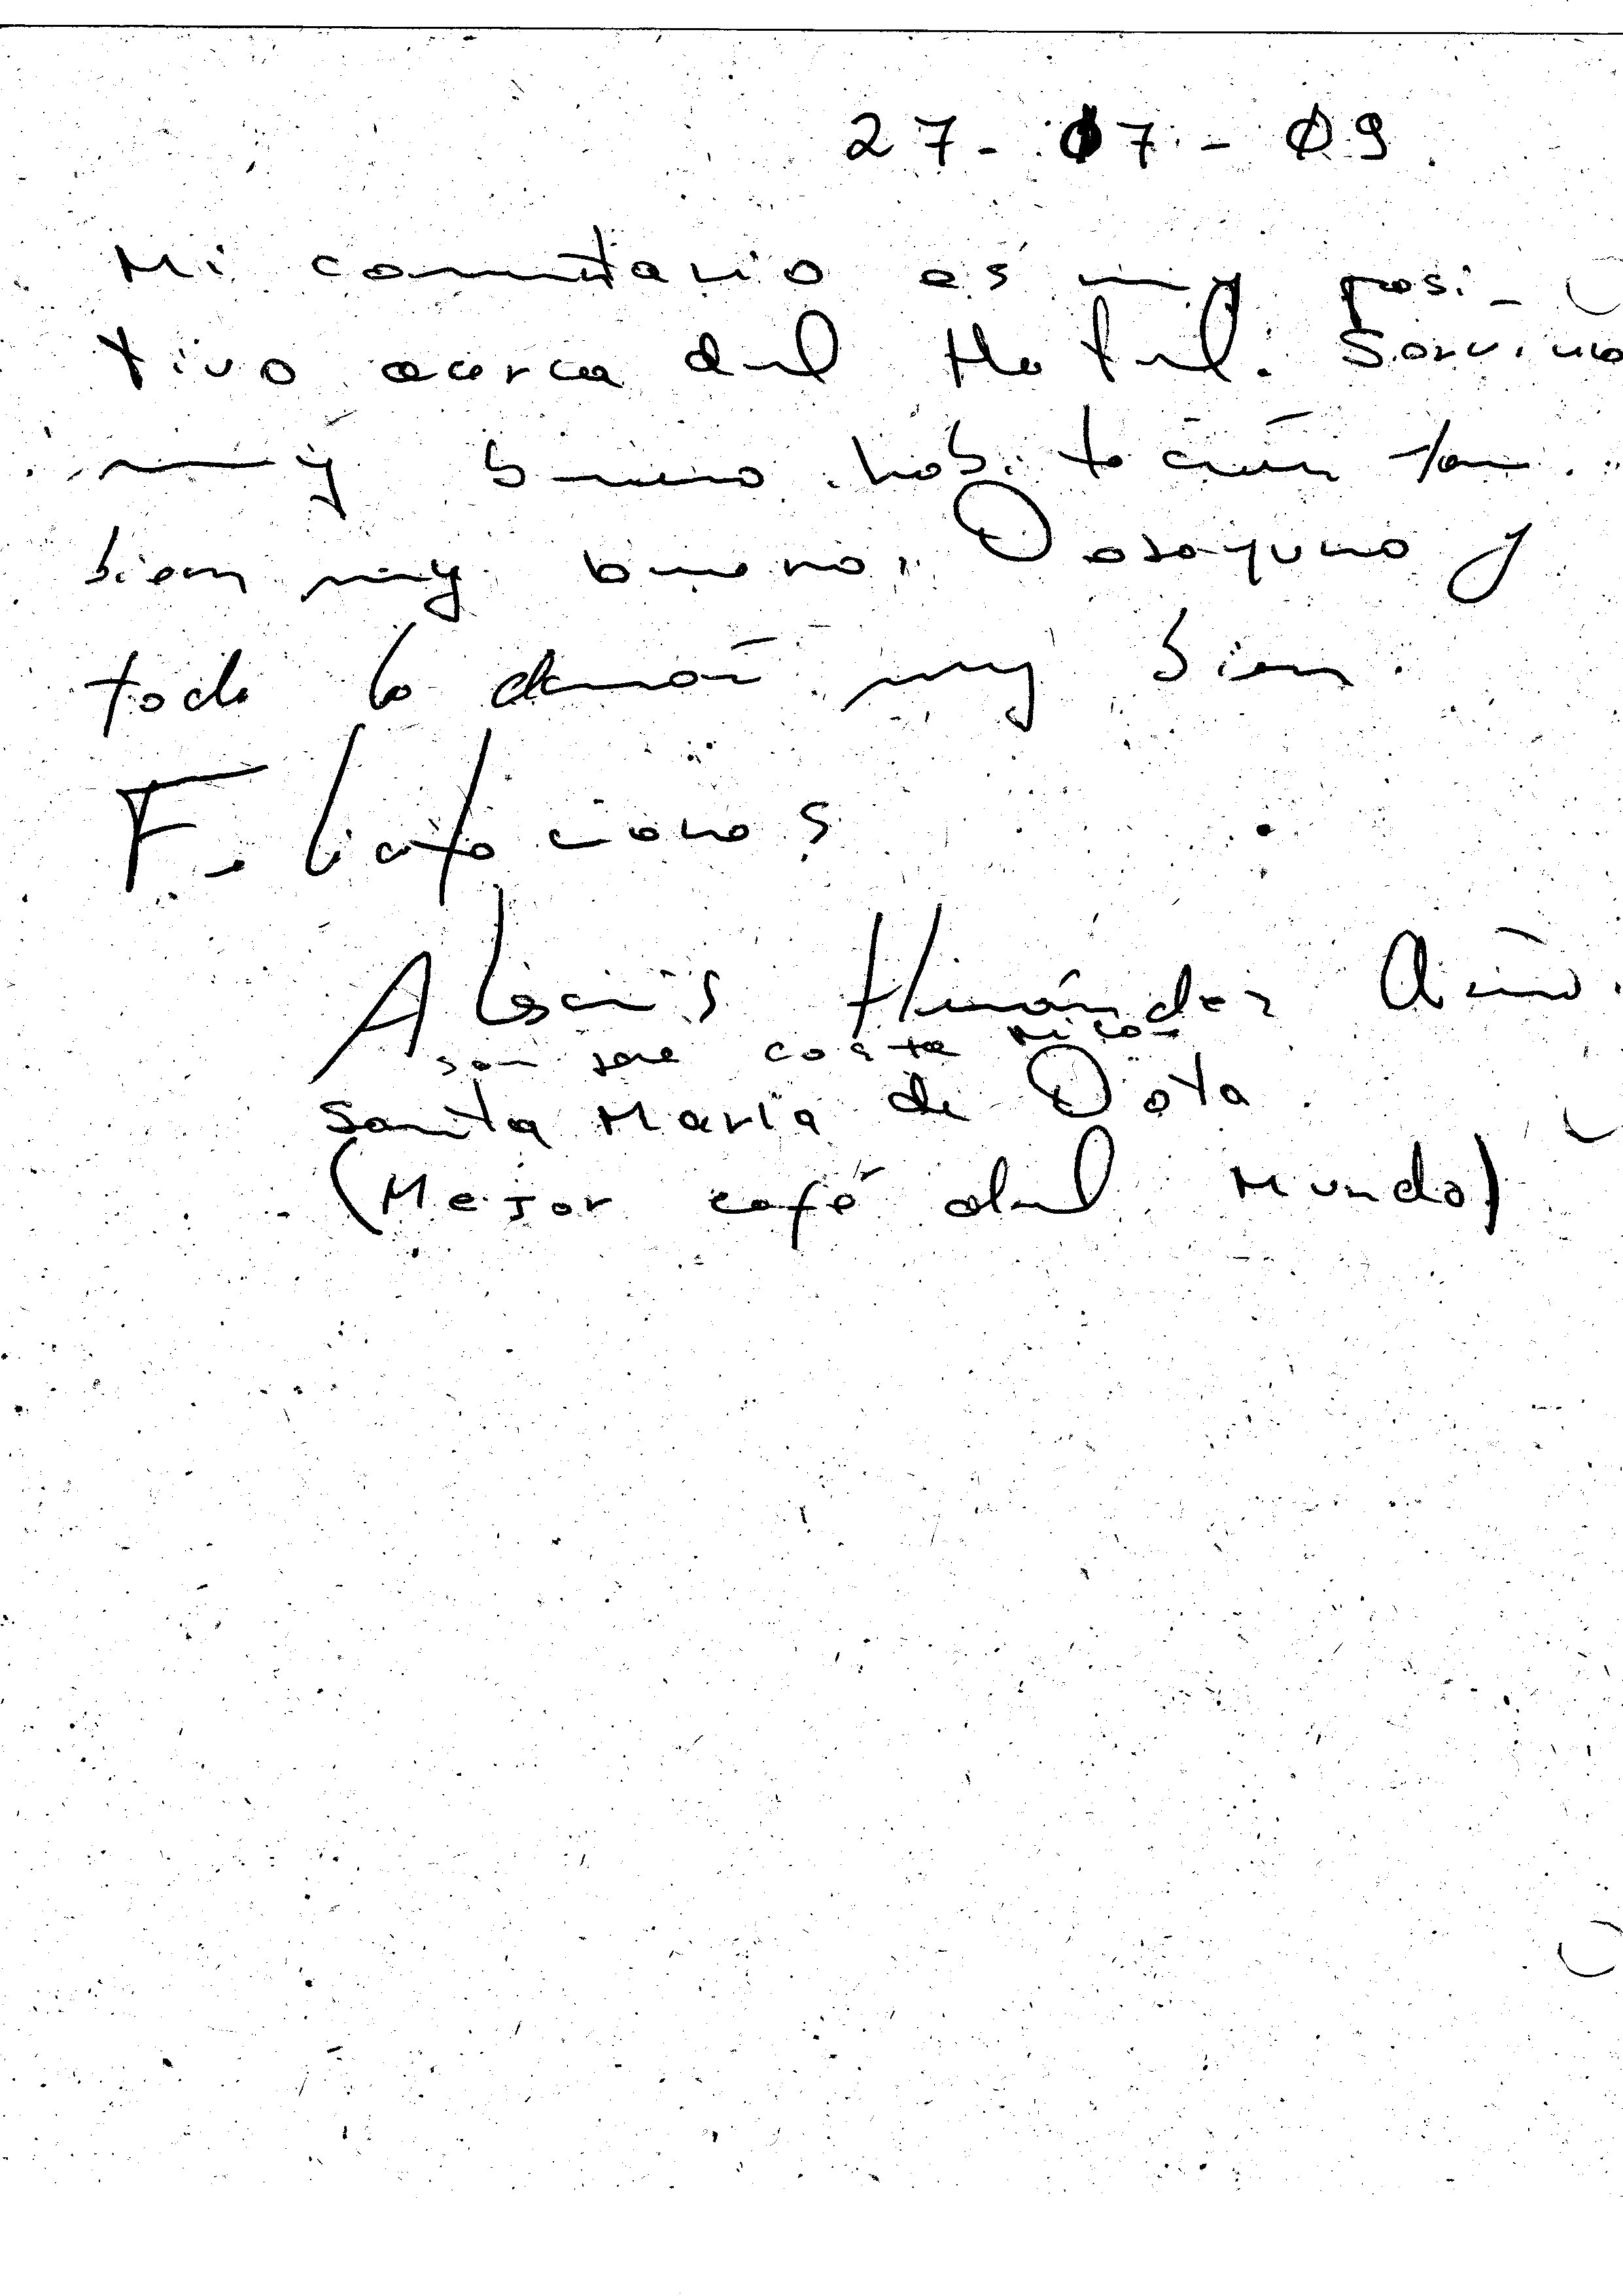 27-07-09
Mi comentario es muy posi-
tivo acerca del Hotel. Servicio
muy bueno habitación tam
bien muy bueno, Desayuno y
todo lo demás muy bien.
Felicitaciones
Hernández
San José Costa Rica
Santa María de Dota
(Mejor café del Mundo)